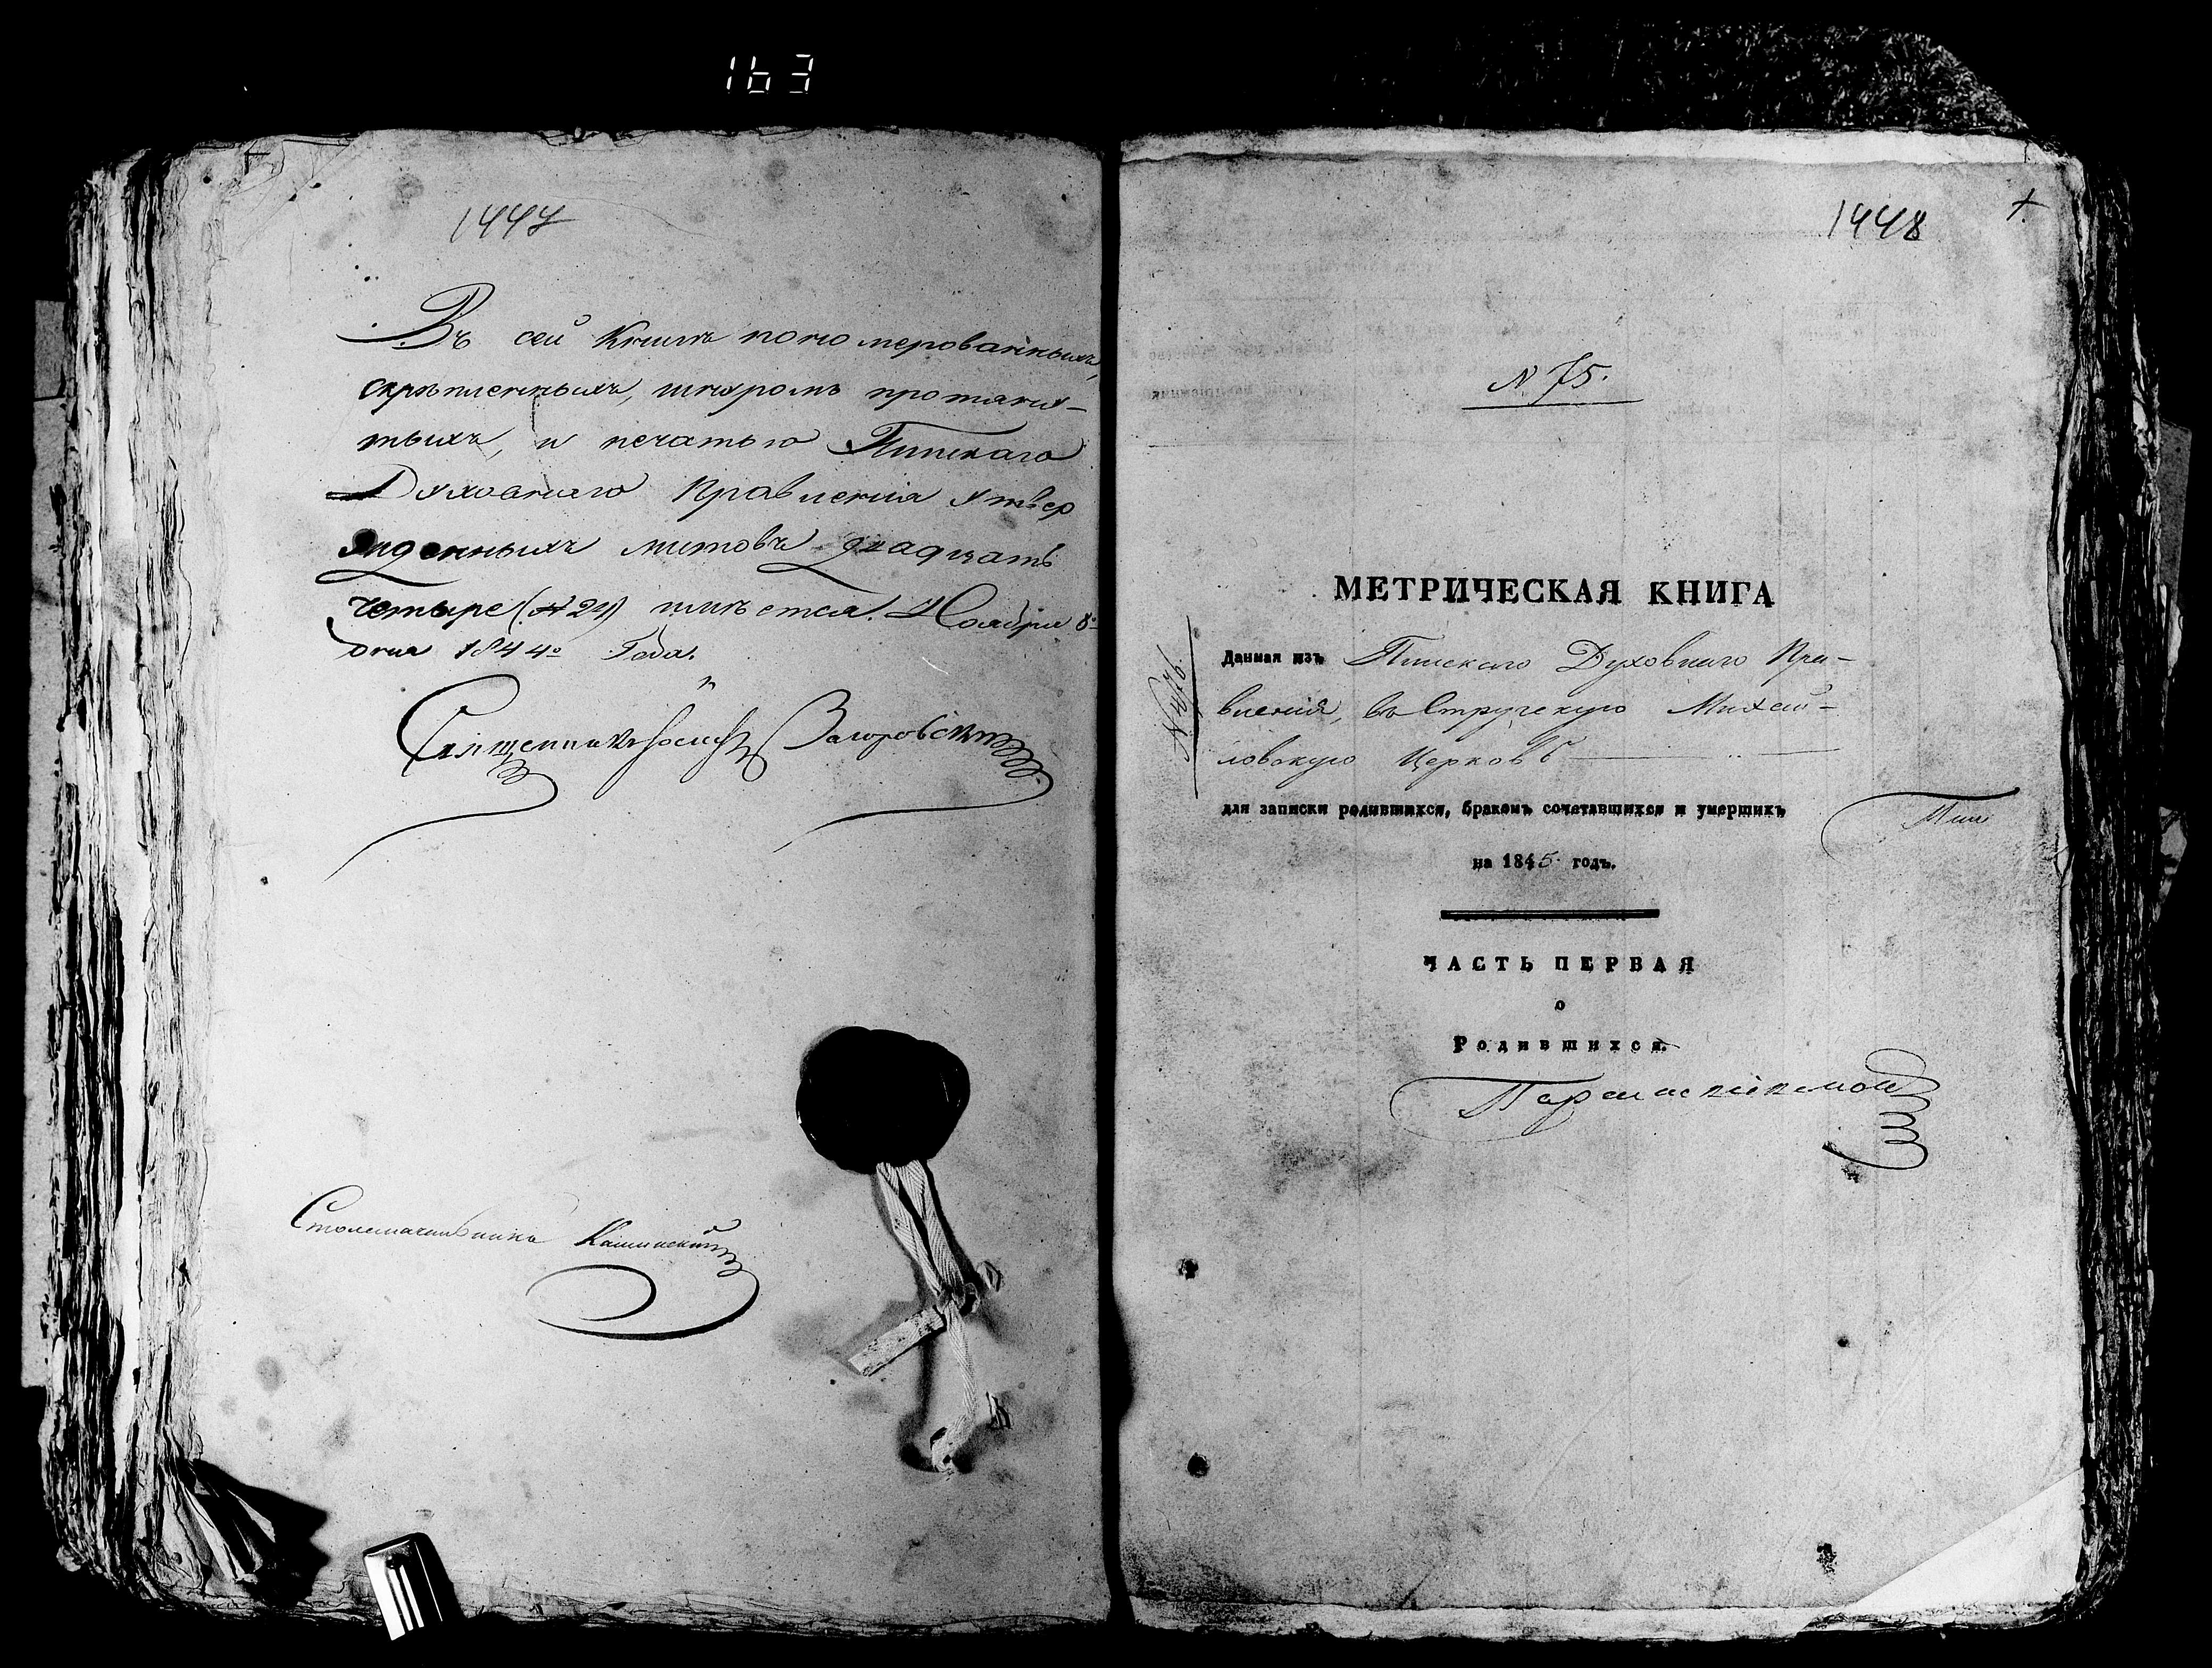 163
1447
Въ сей Книгѣ пономерованныхъ,
скрѣпленныхъ, шнуромъ протяну-
тыхъ, и печатью Пинскаго
Духовнаго Правленія утвер
жденныхъ листовъ двадцать
четыре (№ 24) имѣется. Ноября 8го
дня 1844го Года.
Священникъ Іосифъ Загоровскій
Столоначальникъ Калинскій
1448
N. 75.
МЕТРИЧЕСКАЯ КНИГА
Данная изъ Пинскаго Духовнаго Пра-
вленія, въ Стружскую Михай-
ловскую Церковь
для записки родившихся, бракомъ сочетавшихся и умершихъ
на 1845 годъ.
ЧАСТЬ ПЕРВАЯ
о
Родившихся.